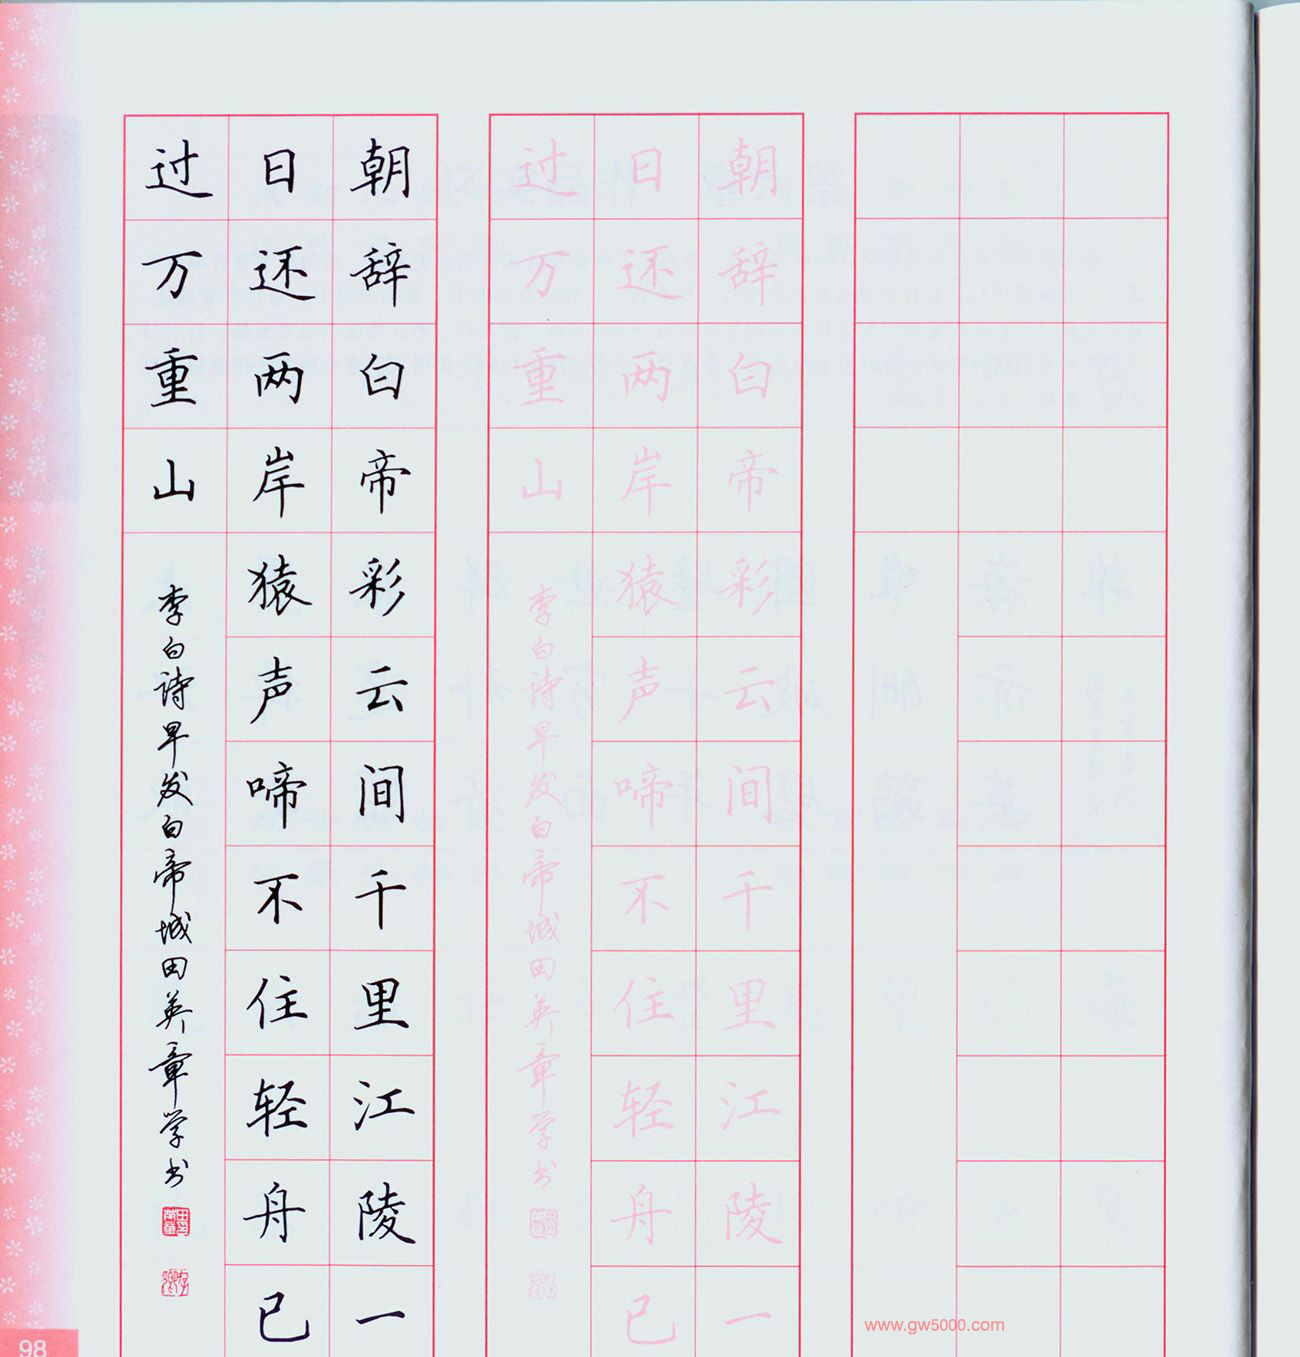 朝辞白帝彩云间千里江陵一
日还两岸猿声啼不住轻舟已
过万重山
李白诗早发白帝城田英章学书
朝辞白帝彩云间千里江陵一
日还两岸猿声啼不住轻舟已
过万重山
李白诗早发白帝城田英章学书
www.gw5000.com
98